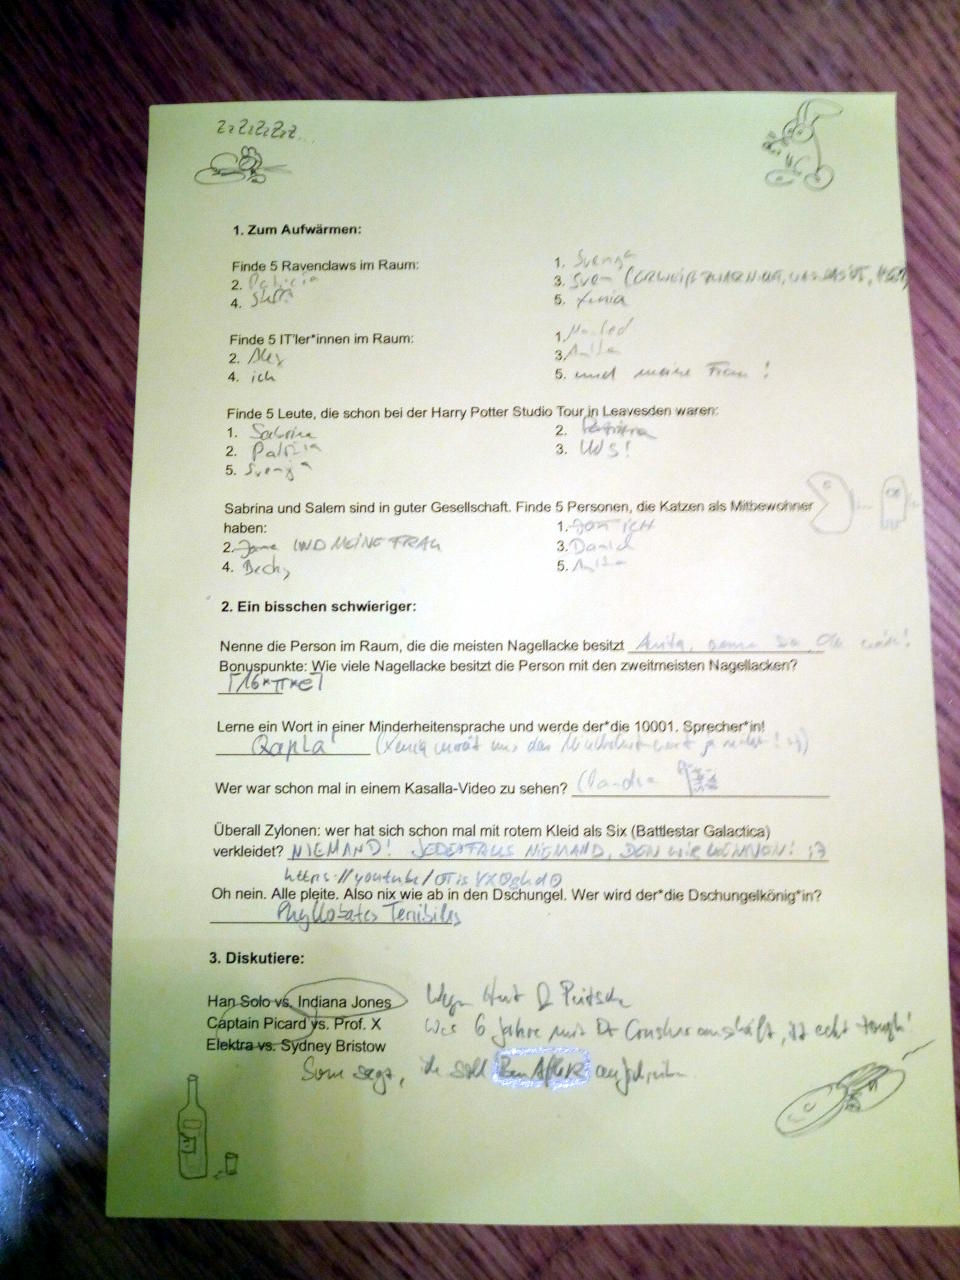 ZzZzZzZz...
1. Zum Aufwärmen:
Finde 5 Ravenclaws im Raum:
1. Svenja
2. Patricia
3. Sven (ER WEIß ZWAR NICHT, WAS DAS IST,
4.
5. Xenia
Finde 5 IT'ler*innen im Raum:
1.
2. Alex
3.
4. ich
5. und meine Frau!
Finde 5 Leute, die schon bei der Harry Potter Studio Tour in Leavesden waren:
1. Sabrina
2.
2. Patrizia
3. UNS!
5. Svenja
Sabrina und Salem sind in guter Gesellschaft. Finde 5 Personen, die Katzen als Mitbewohner
haben:
1. ICH
2. UND MEINE FRAU
3. Daniel
4. Becky
5.
2. Ein bisschen schwieriger:
Nenne die Person im Raum, die die meisten Nagellacke besitzt Anita,
Bonuspunkte: Wie viele Nagellacke besitzt die Person mit den zweitmeisten Nagellacken?
⌈16*π*e⌉
Lerne ein Wort in einer Minderheitensprache und werde der*die 10001. Sprecher*in!
Qapla' (Xenia verrät uns das ja nicht! ;-))
Wer war schon mal in einem Kasalla-Video zu sehen?
Überall Zylonen: wer hat sich schon mal mit rotem Kleid als Six (Battlestar Galactica)
verkleidet? NIEMAND! JEDENFALLS NIEMAND, DEN WIR KENNEN! ;)
Oh nein. Alle pleite. Also nix wie ab in den Dschungel. Wer wird der*die Dschungelkönig*in?
Phyllobates Terribilis
3. Diskutiere:
Han Solo vs. Indiana Jones Wegen Hut & Peitsche
Captain Picard vs. Prof. X Wer 6 Jahre mit Dr Crusher aushält, ist echt tough!
Elektra vs. Sydney Bristow
sagt, ich soll Ben Affleck aufschreiben